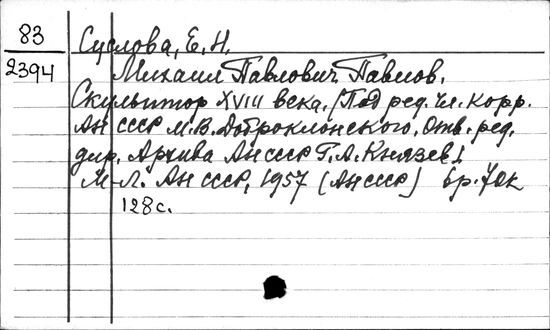 83
2394
Суслова, Е. Н.
Михаил Павлович Павлов.
Скульптор XVIII века. /Под ред. Чл. Корр.
АН СССР М. В. Доброклонского. Отв. ред.
дир. Архива АН СССР Г. А. Князев/.
М-Л. АН СССР, 1957 (АН СССР) 6р. 70к
128 с.